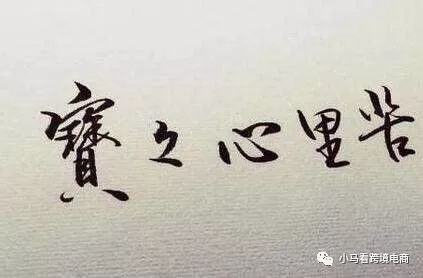 寶々心里苦
小马看跨境电商